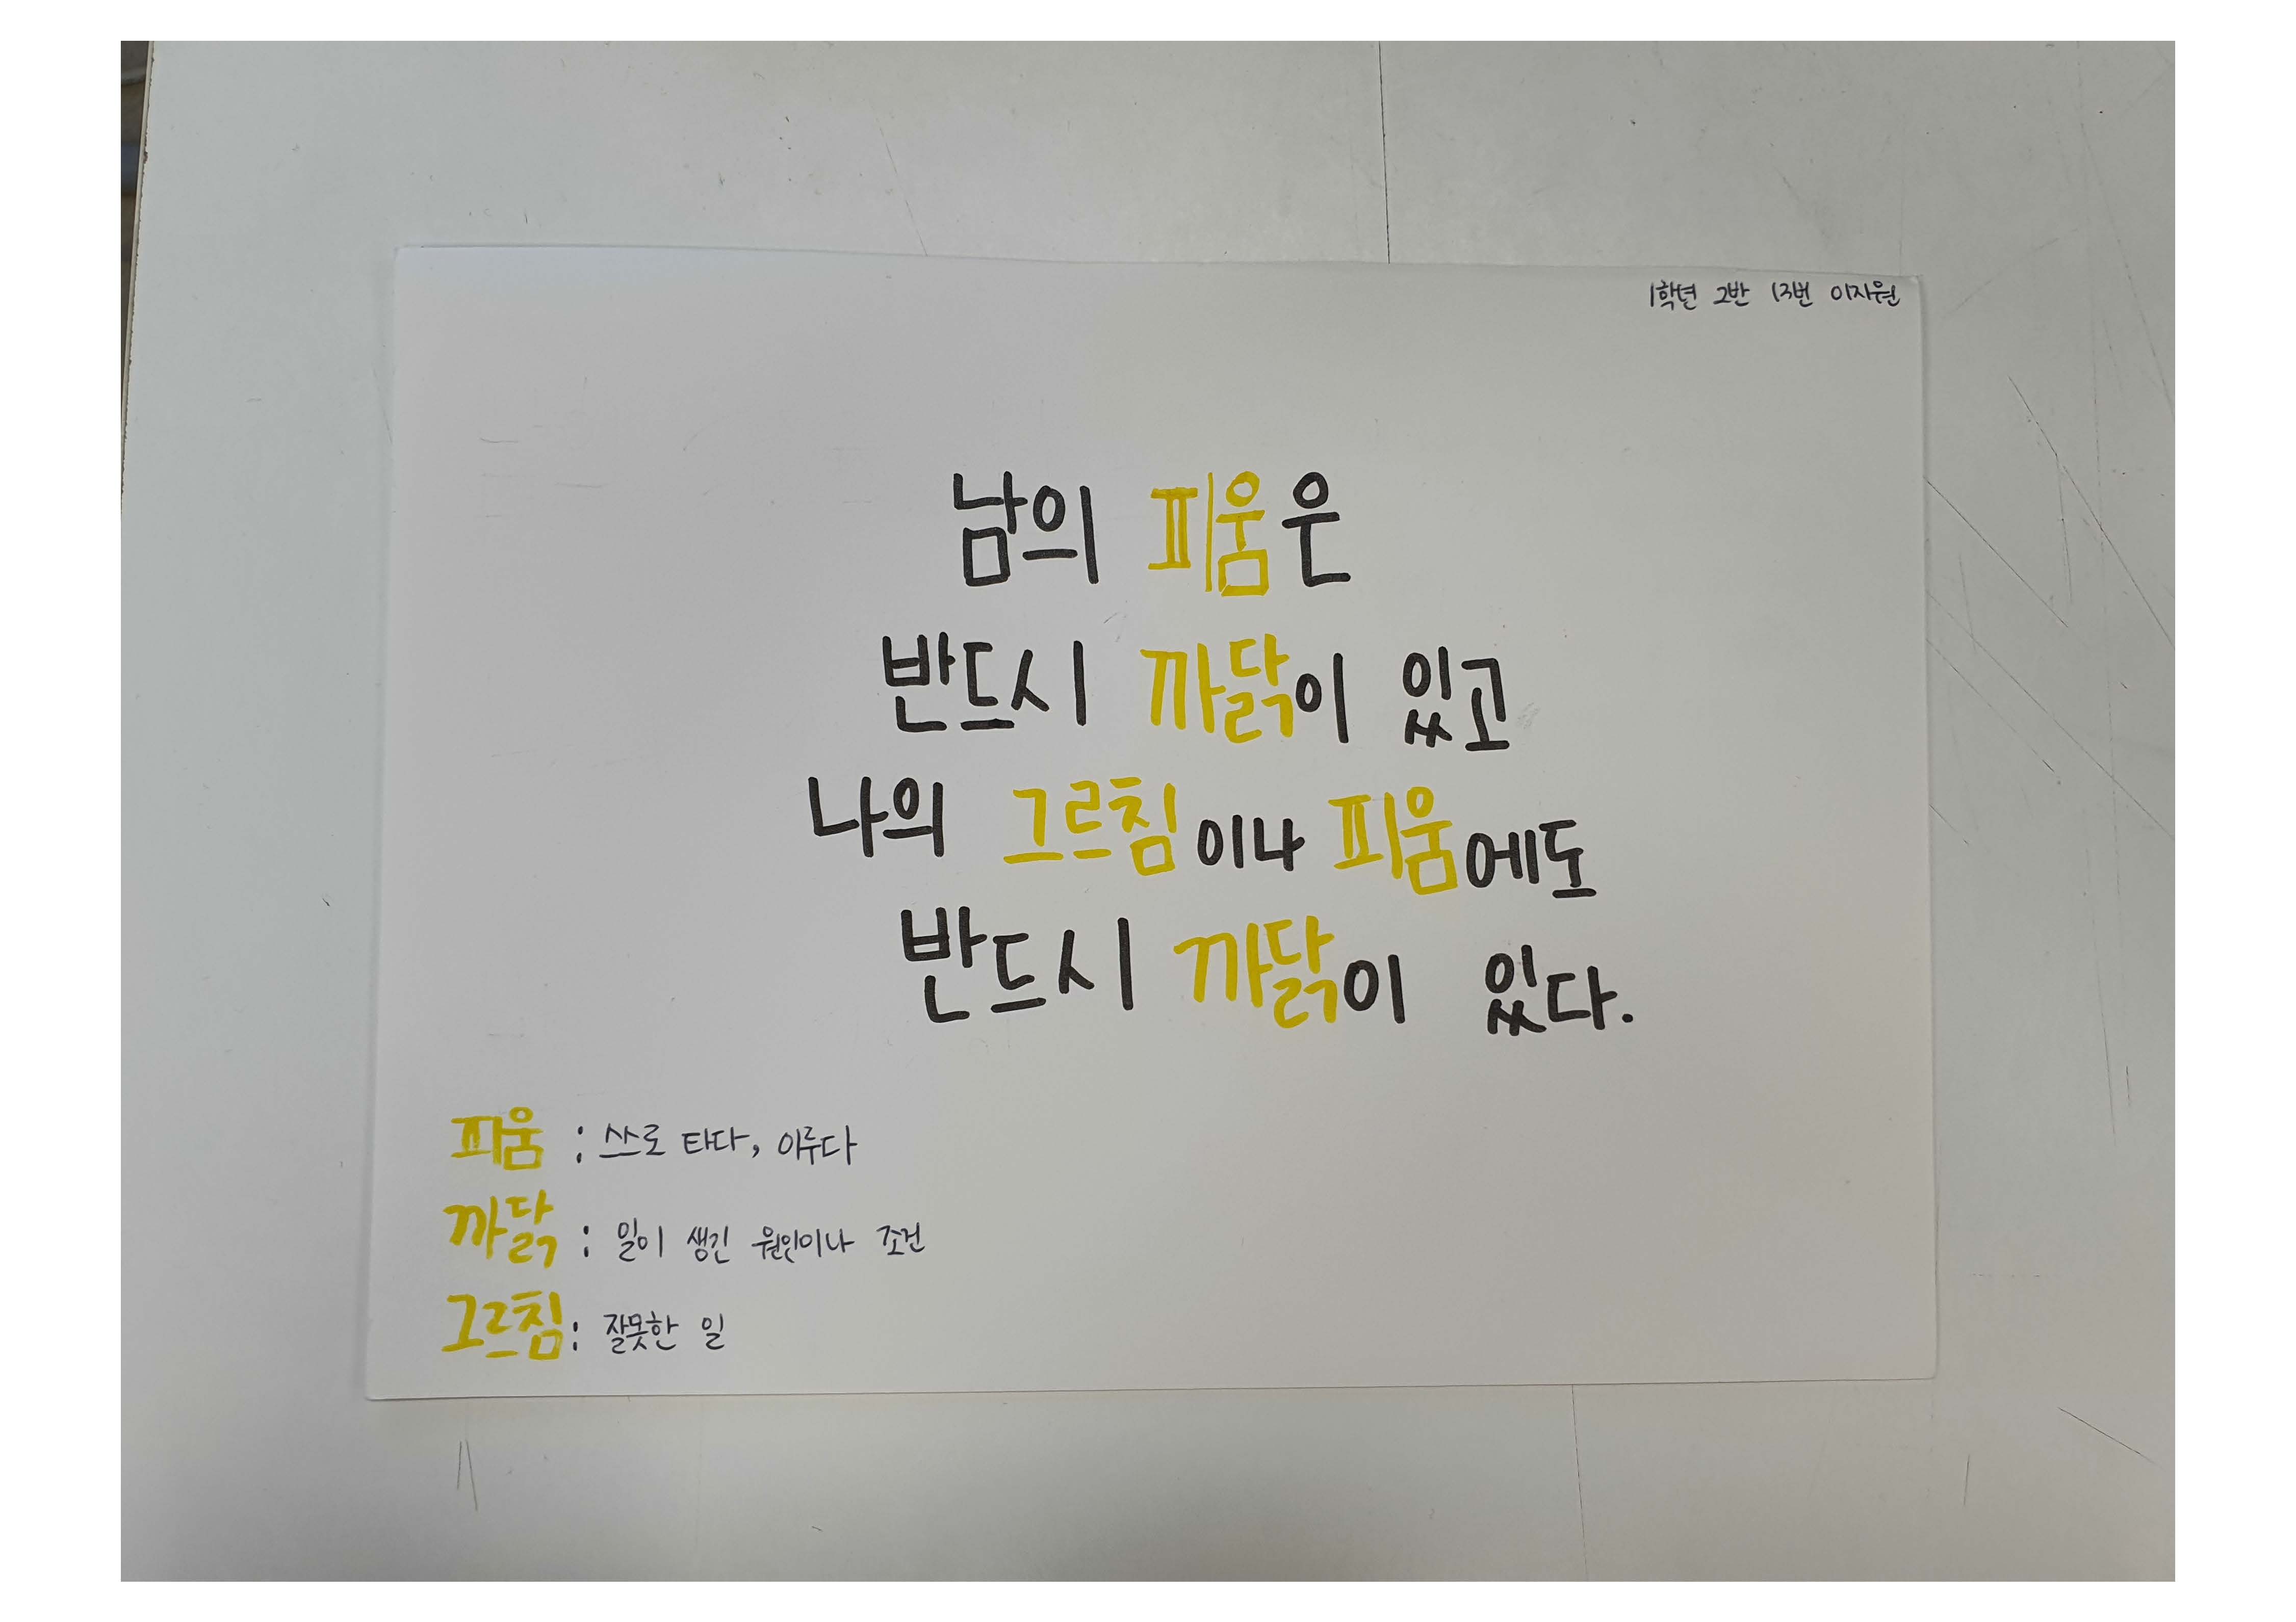 1학년 2반 13번 이지원
남의 피움은
반드시 까닭이 있고
나의 그르침이나 피움에도
반드시 까닭이 있다.
피움 : 쓰로 타다, 이루다
까닭 : 일이 생긴 원인이나 조건
그르침 : 잘못한 일